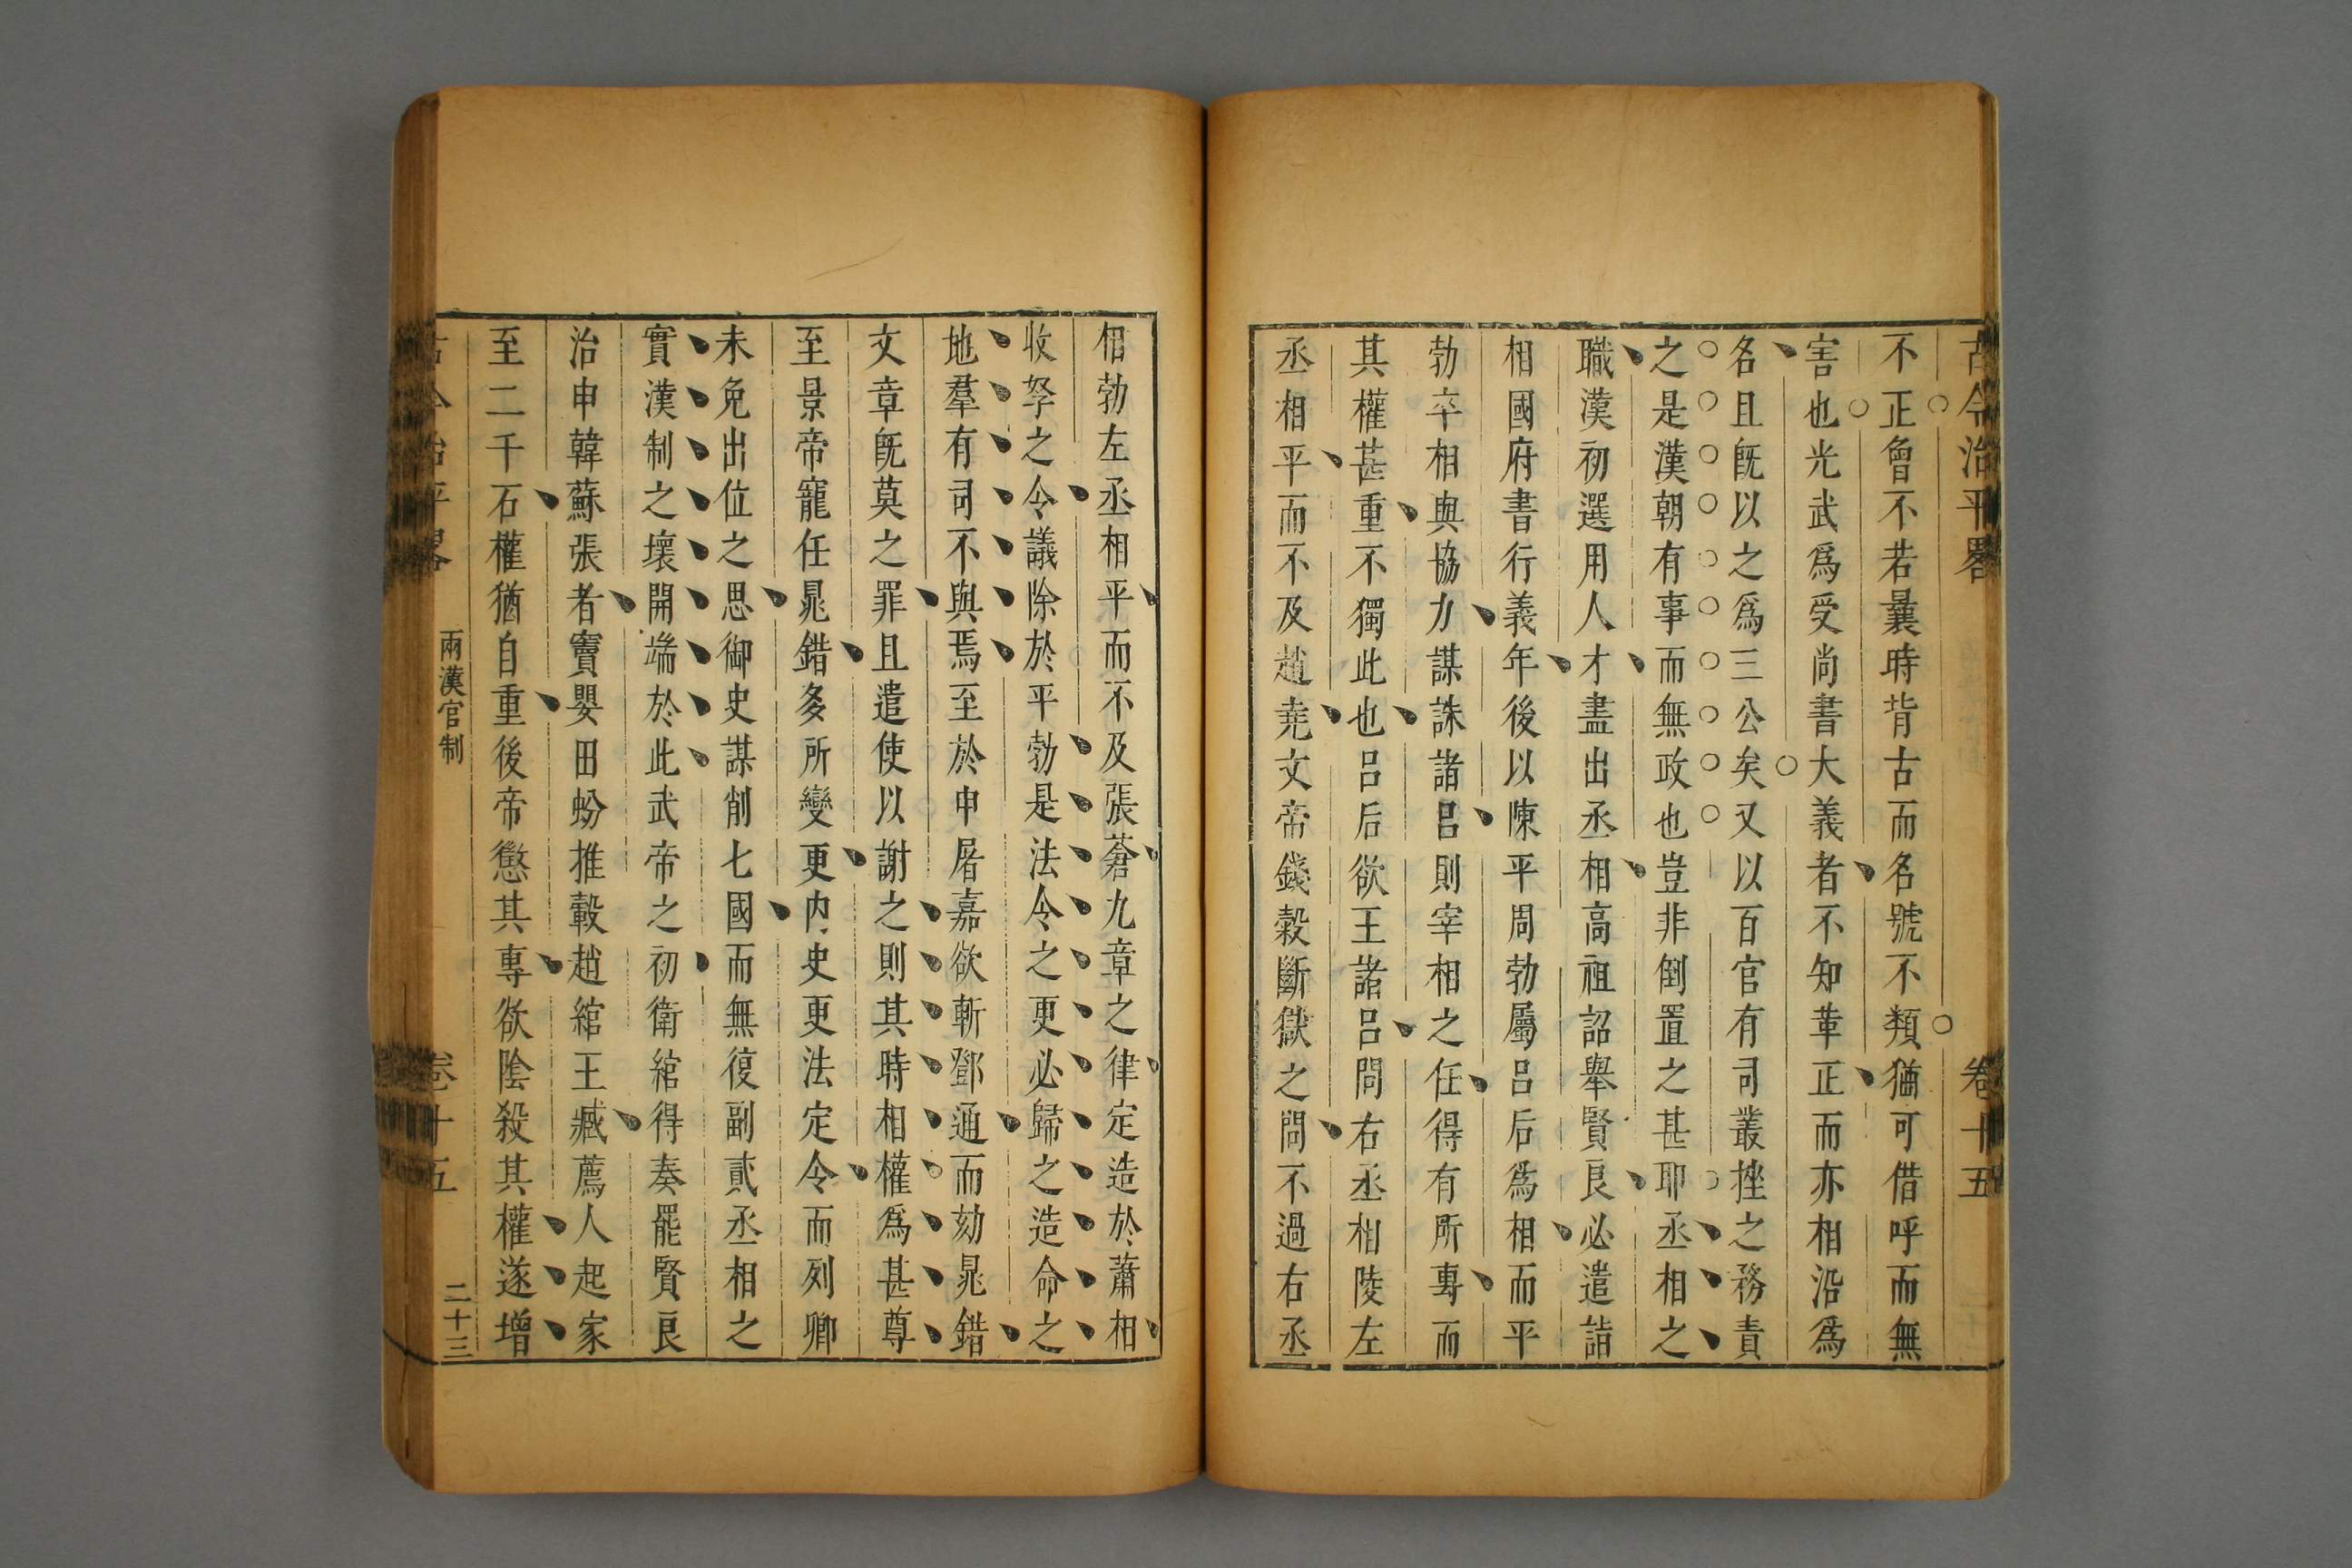 古今治平畧 卷十五
不正曾不若曩時背古而名號不類猶可借呼而無
害也光武爲受尚書大義者不知革正而亦相沿爲
名且旣以之爲三公矣又以百官有司叢挫之務責
之是漢朝有事而無政也豈非倒置之甚耶丞相之
職漢初選用人才盡出丞相高祖詔舉賢良必遣詣
相國府書行義年後以陳平周勃屬呂后爲相而平
勃卒相與協力謀誅諸呂則宰相之任得有所專而
其權甚重不獨此也呂后欲王諸呂問右丞相陵左
丞相平而不及趙堯文帝錢穀斷獄之問不過右丞
相勃左丞相平而不及張蒼九章之律定造於蕭相
收孥之令議除於平勃是法令之更必歸之造命之
地羣有司不與焉至於申屠嘉欲斬鄧通而劾晁錯
文章旣莫之罪且遣使以謝之則其時相權爲甚尊
至景帝寵任晁錯多所變更內史更法定令而列卿
未免出位之思御史謀削七國而無復副貳丞相之
實漢制之壞開端於此武帝之初衛綰得奏罷賢良
治申韓蘇張者竇嬰田蚡推轂趙綰王臧薦人起家
至二千石權猶自重後帝懲其專欲陰殺其權遂增
古今治平畧 兩漢官制 卷十五 二十三